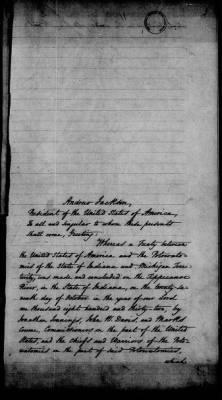 Andrew Jackson,
President of the United States of America,
To all and singular to whom these presents
shall come, Greeting:
Whereas a Treaty between
the United States of America and the Potowato-
mies of the State of Indiana and Michigan Terri-
tory, was made and concluded on the Tippecanoe
River, in the State of Indiana, on the twenty-se-
venth day of October in the year of our Lord
on thousand eight hundred and thirty-two, by
Jonathan Jennings, John W. Davis, and Marks
Crume, Commissioners on the part of the United
States, and the Chiefs and Warriors of the Poto-
watomies on the part of said Potowatomies,
which